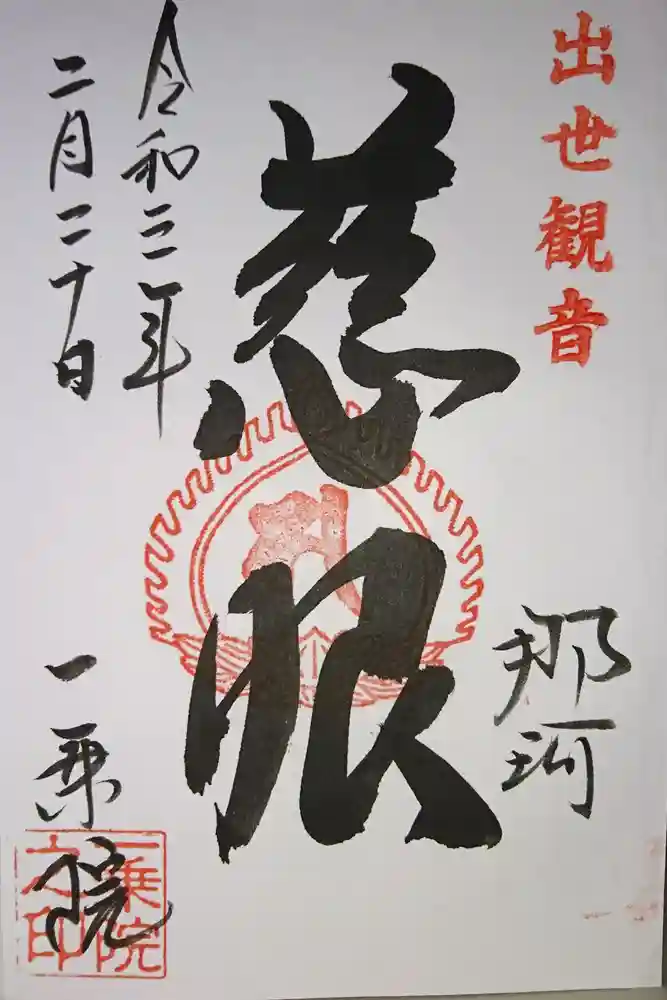 出世観音
那珂
慈眼
令和三年
二月二十日
一乗院
一乗院
之印